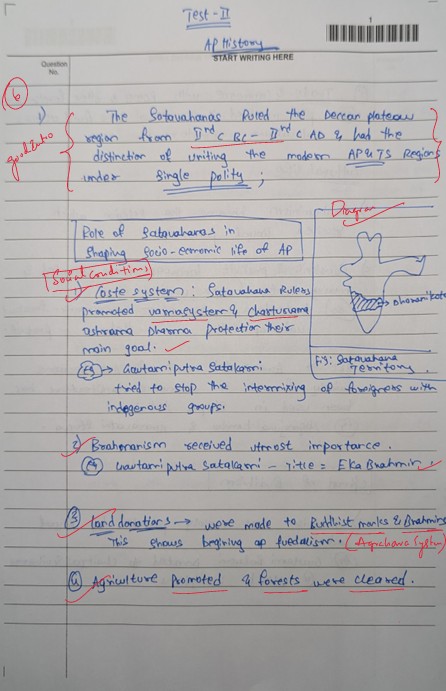 Test-II
1
AP History
START WRITING HERE
Question
No.
6
1)
good Intro
The Satavahanas Ruled the Deccan plateau
region from IInd C BC - IInd C AD & had the
distinction of uniting the modern AP & TS Regions
under Single polity;
Role of Satavahanas in
shaping Socio-economic life of AP
Diagram
Social conditions
1) Caste system: Satavahana Rulers
promoted varnasystem & chaturvarna
ashrama Dharma protection their
main goal.
Dharanikota
Fig: Satavahana
Territory.
Eg → Gautamiputra Satakarni
tried to stop the intermixing of foreigners with
indegenous groups.
2) Brahmanism received utmost importance.
Eg Gautamiputra Satakarni - Title = Eka Brahmin
3 Land donations → were made to Buddhist monks & Brahmins
This shows begining of fuedalism. (Agrahara System)
4 Agriculture Promoted & forests were cleared.